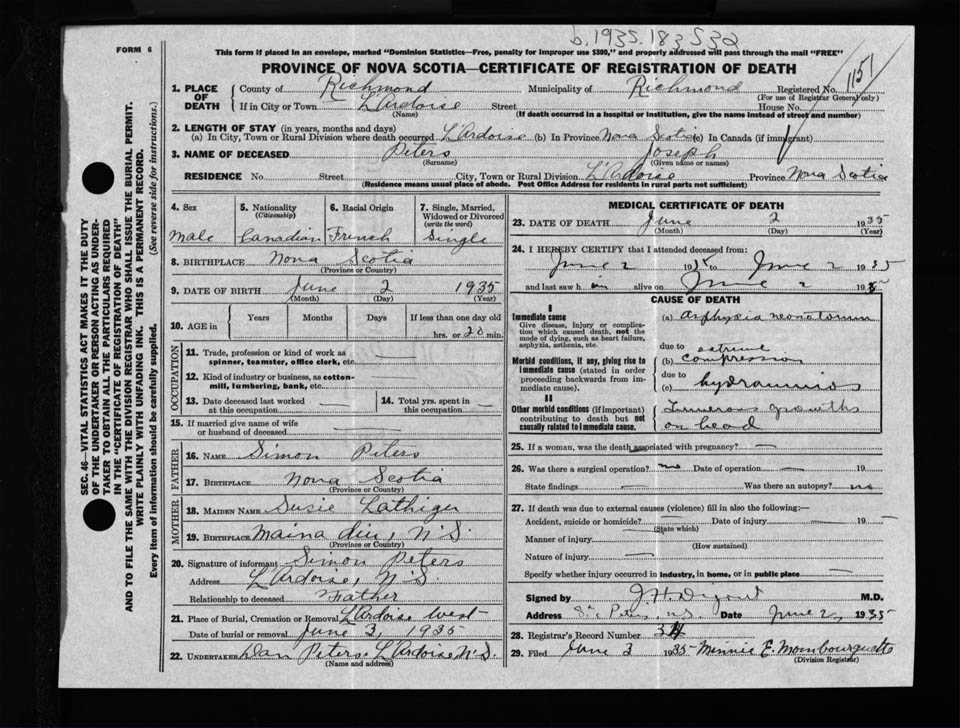 b.1935.183532
FORM 6
This form if placed in an envelope, marked "Dominion Statistics—Free, penalty for improper use $300," and properly addressed will pass through the mail "FREE"
PROVINCE OF NOVA SCOTIA—CERTIFICATE OF REGISTRATION OF DEATH
1151
1. PLACE OF DEATH County of Richmond Municipality of Richmond Registered No.
(For use of Registrar General only)
If in City or Town L'Ardoise Street House No.
(Name) (If death occurred in a hospital or institution, give the name instead of street and number)
2. LENGTH OF STAY (in years, months and days)
(a) In City, Town or Rural Division where death occurred L'Ardoise (b) In Province Nova Scotia (c) In Canada (if immigrant)
3. NAME OF DECEASED Peters Joseph
(Surname) (Given name or names)
RESIDENCE No. Street City, Town or Rural Division L'Ardoise Province Nova Scotia
(Residence means usual place of abode. Post Office Address for residents in rural parts not sufficient)
4. Sex 5. Nationality (Citizenship) 6. Racial Origin 7. Single, Married, Widowed or Divorced (write the word)
Male Canadian French Single
8. BIRTHPLACE Nova Scotia
(Province or Country)
9. DATE OF BIRTH June 2 1935
(Month) (Day) (Year)
10. AGE in Years Months Days If less than one day old
hrs. or 20 min.
OCCUPATION
11. Trade, profession or kind of work as spinner, teamster, office clerk, etc. —
12. Kind of industry or business, as cotton-mill, lumbering, bank, etc. —
13. Date deceased last worked at this occupation — 14. Total yrs. spent in this occupation —
15. If married give name of wife or husband of deceased —
FATHER
16. Name Simon Peters
17. Birthplace Nova Scotia
(Province or Country)
MOTHER
18. Maiden Name Susie
19. Birthplace N.S.
(Province or Country)
20. Signature of informant Simon Peters
Address L'Ardoise, N.S.
Relationship to deceased Father
21. Place of Burial, Cremation or Removal L'Ardoise West
Date of burial or removal June 3, 1935
22. Undertaker Dan Peters. L'Ardoise N.S.
(Name and address)
MEDICAL CERTIFICATE OF DEATH
23. DATE OF DEATH June 2 1935
(Month) (Day) (Year)
24. I HEREBY CERTIFY that I attended deceased from:
June 2 1935 to June 2 1935
and last saw him alive on June 2 1935
CAUSE OF DEATH
I
Immediate cause
Give disease, injury or complication which caused death, not the mode of dying, such as heart failure, asphyxia, asthenia, etc.
(a) asphyxia neonatorum
due to extreme
(b) compression
Morbid conditions, if any, giving rise to immediate cause (stated in order proceeding backwards from immediate cause).
due to
(c) hydramnios
II
Other morbid conditions (if important) contributing to death but not causally related to immediate cause.
growths
on head
25. If a woman, was the death associated with pregnancy? —
26. Was there a surgical operation? no Date of operation — 19
State findings — Was there an autopsy? no
27. If death was due to external causes (violence) fill in also the following:—
Accident, suicide or homicide? — Date of injury — 19
(State which)
Manner of injury
(How sustained)
Nature of injury —
Specify whether injury occurred in industry, in home, or in public place —
Signed by M.D.
Address St. Peters, N.S. Date June 2, 1935
28. Registrar's Record Number 34
29. Filed June 3 1935 Minnie E. Mombourquette
(Division Registrar)
SEC. 46—VITAL STATISTICS ACT MAKES IT THE DUTY
OF THE UNDERTAKER OR PERSON ACTING AS UNDER-
TAKER TO OBTAIN ALL THE PARTICULARS REQUIRED
IN THE "CERTIFICATE OF REGISTRATION OF DEATH"
AND TO FILE THE SAME WITH THE DIVISION REGISTRAR WHO SHALL ISSUE THE BURIAL PERMIT.
WRITE PLAINLY WITH UNFADING INK. THIS IS A PERMANENT RECORD.
Every item of information should be carefully supplied. (See reverse side for instructions.)